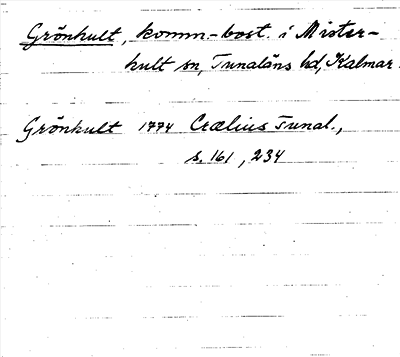 Grönhult, komm-bost. i Mister-
hult sn, Tunaläns hd, Kalmar
Grönhult 1774 Crælius Tunal.,
s. 161, 234